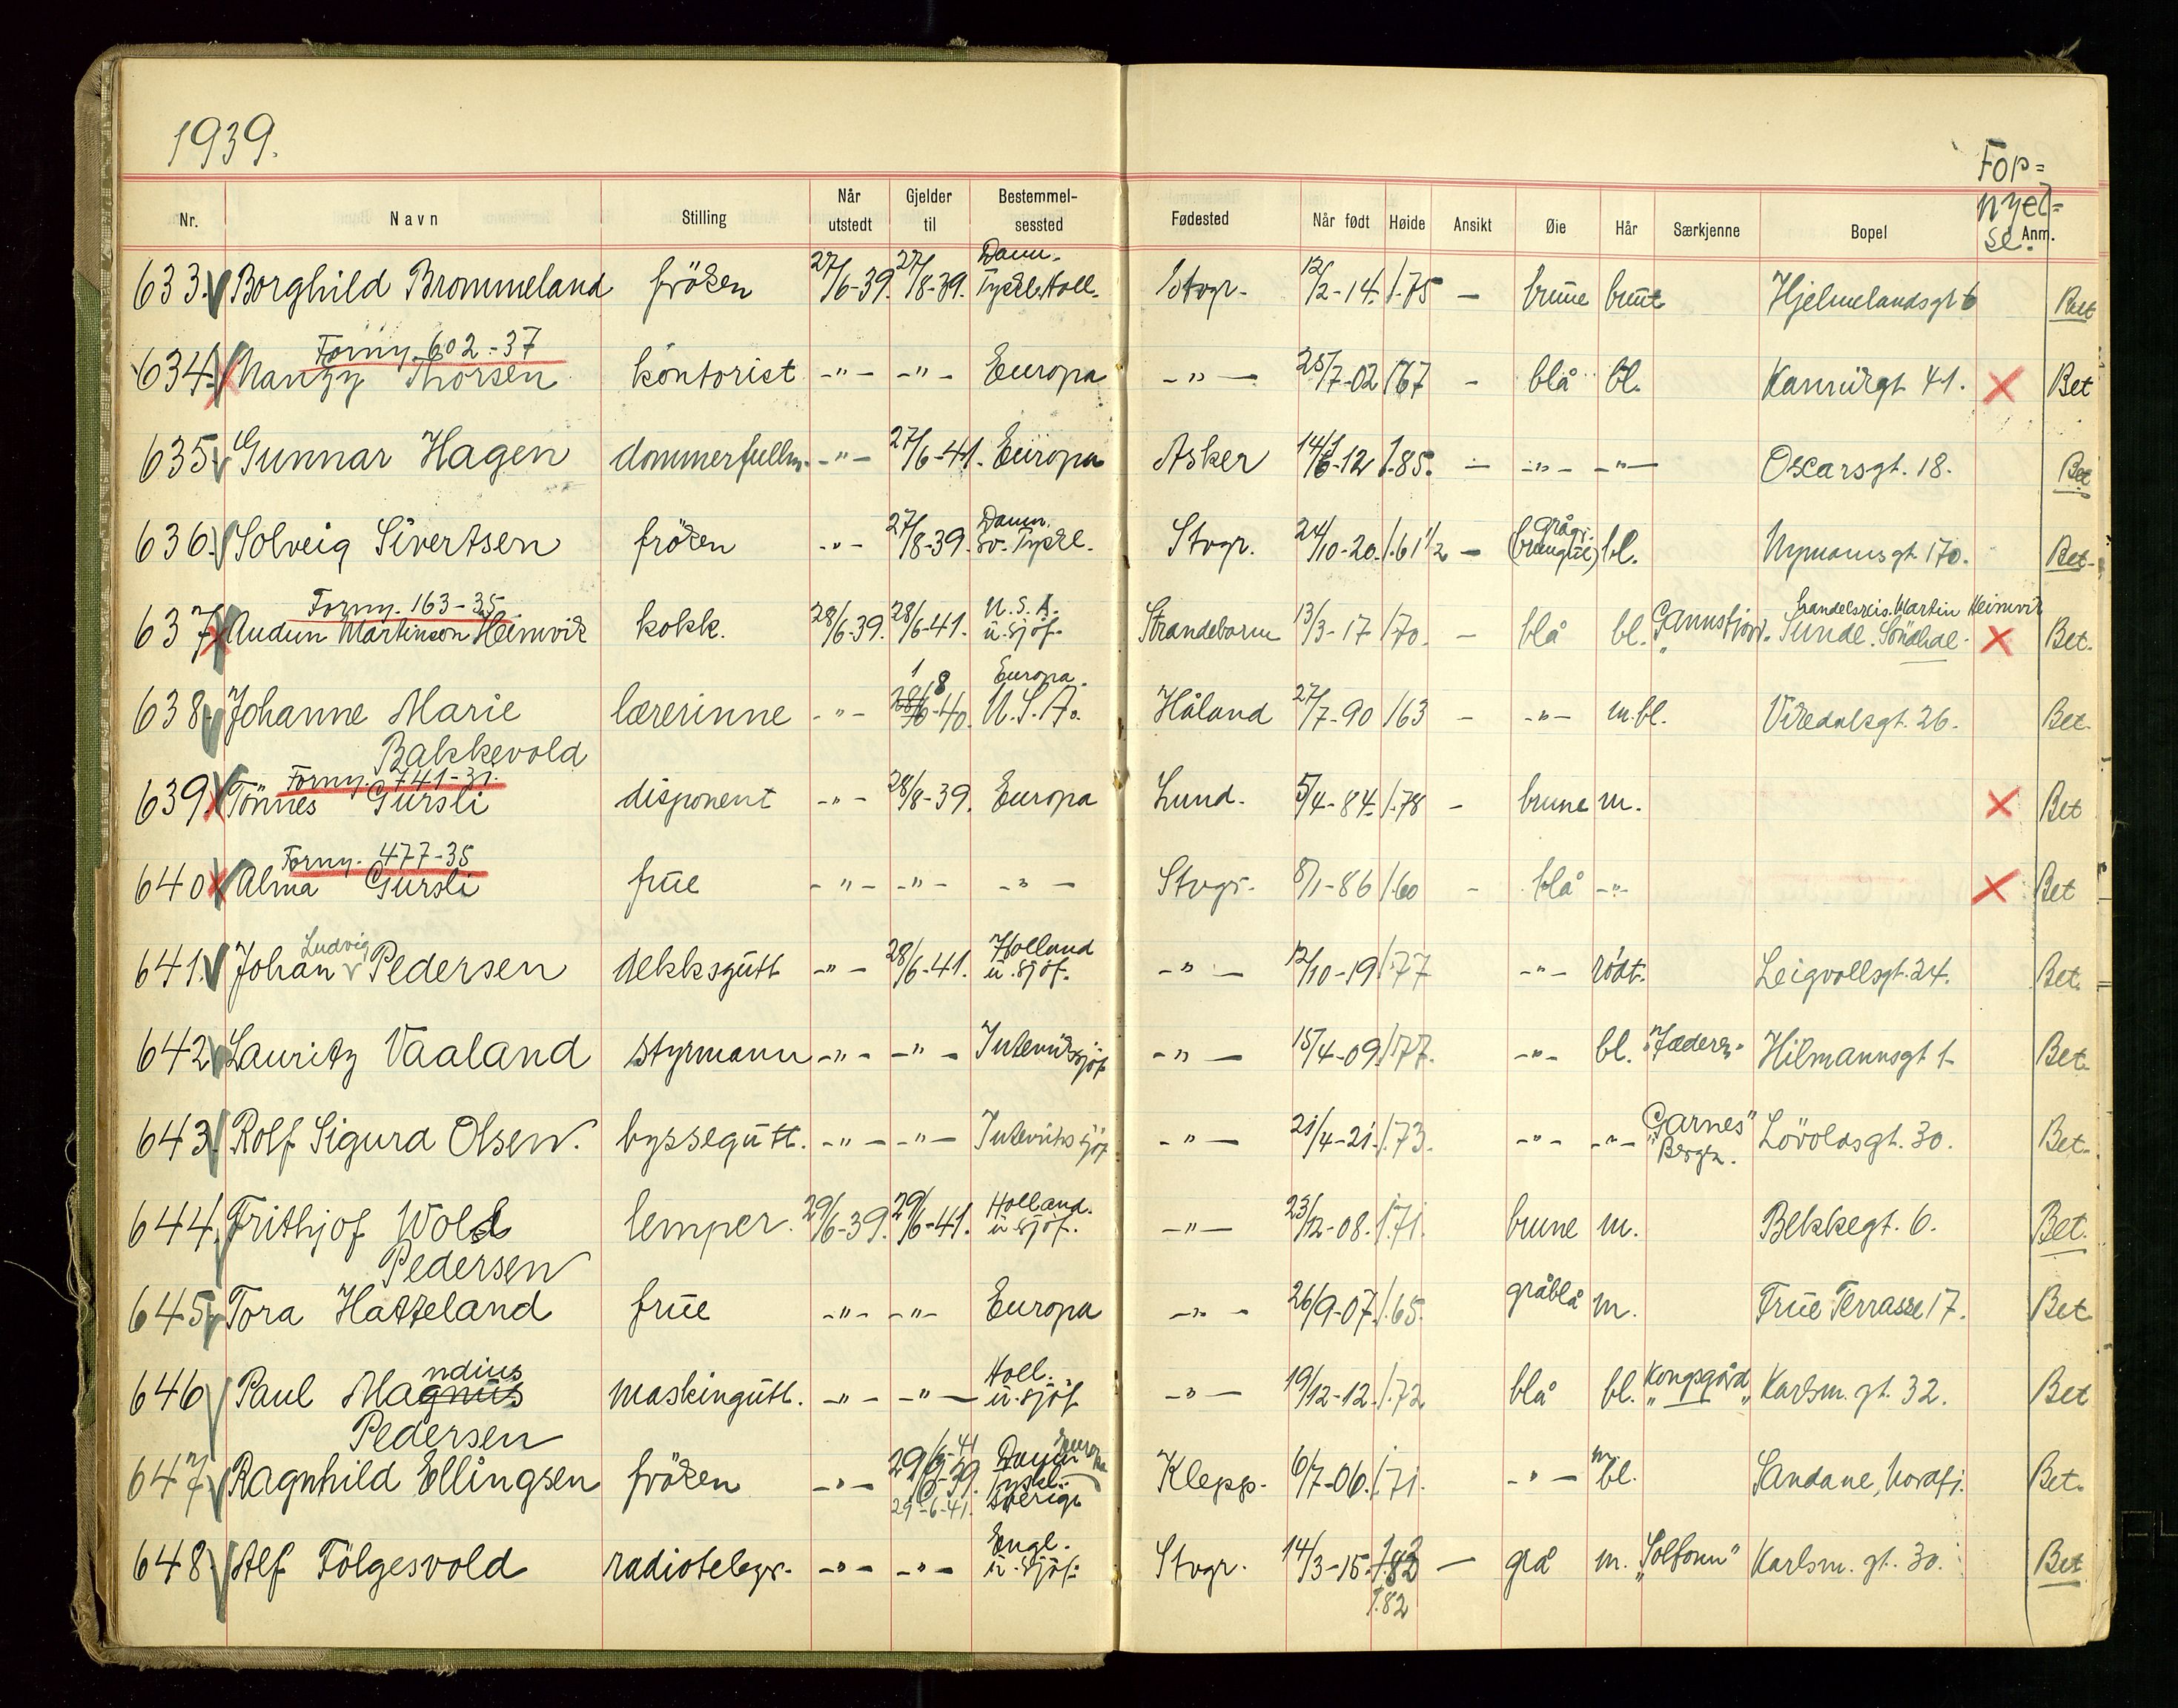 1939.
For=
nyel=
se.
Nr. Navn Stilling Når utstedt Gjelder til Bestemmel-sessted Fødested Når født Høide Ansikt Øie Hår Særkjenne Bopel Anm.
Danm.
633. Borghild Brommeland fröken 27/6-39. 27/8-39. Tyskl. Holl. Stvgr. 12/2-14. 1.75 - brune brunt Hjelmelandsgt 6 Bet
Forny. 602-37
634. Nanzy Thorsen kontorist -"- -"- Europa -"- 25/7-02 167 - blå bl. Kannikgt. 41. X Bet
635. Gunnar Hagen dommerfullm. -"- 27/6-41. Europa Asker 14/6-12 1.85. - -"- -"- Oscarsgt. 18. Bet
Danm. grågr.
636. Solveig Sivertsen fröken -"- 27/8-39. Sv. Tyskl. Stvgr. 24/10-20. 1.61 1/2 - bl. Nymansgt. 170. Bet.
Forny. 163-35 U.S.A. Martin Heimvik
637. Audun Martinson Heimvik kokk. 28/6-39. 28/6-41. u. sjöf. Strandebarm 13/3-17 170. - blå bl. Sunde. X Bet.
1 8 Europa.
638. Johanne Marie lærerinne -"- 28/6-40. U.S.A. Håland 27/7-90 163 - -"- m.bl. Vikedalsgt. 26. Bet.
Bakkevold
Forny. 741-37.
639. Tönnes Gursli disponent -"- 28/8-39. Europa Lund. 5/4-84. 1.78 - brune m. X Bet
Forny. 477-35
640 Alma Gursli frue -"- -"- -"- Stvgr. 8/1-86 160 - blå -"- X Bet
Ludvig Holland
641. Johan Pedersen dekksgutt -"- 28/6-41. u. sjöf. -"- 12/10-19. 177 -"- rödt. Leigvollsgt. 24. Bet.
642 Lauritz Vaaland styrmann -"- -"- Utenriks sjöf -"- 15/4-09. 177. -"- bl. "Jæderen" Hilmannsgt 1 Bet.
"Garnes"
643. Rolf Sigurd Olsen. byssegutt. -"- -"- Utenriks sjöf -"- 21/4-21. 1.73. -"- -"- Bergen. Lövoldsgt. 30. Bet.
Holland.
644. Frithjof Wold lemper. 29/6-39. 29/6-41. u. sjöf. -"- 23/12-08. 1.71. brune m. Bekkegt. 6. Bet.
Pedersen
645. Tora Hatteland frue -"- -"- Europa -"- 26/9-07. 1.65. gråblå m. Frue Terrasse 17. Bet
ndius Holl.
646 Paul Magnus maskingutt. -"- -"- u. sjöf -"- 19/12-12. 1.72 blå bl. "Kongsgård" Karlsm. gt. 32. Bet
Pedersen
29/6-41 Danm. Europa
647 Ragnhild Ellingsen fröken -"- 29/8-39. Tyskl. Klepp. 6/7-06. 1.71. -"- m bl. Sandane, Nordfj. Bet.
29-6-41. Sverige
Engl.
648. Alf Fölgesvold radiotelegr. -"- -"- u. sjöf. Stvgr. 14/3-15. 1.83 - grå m. "Solfonn" Karlsm. gt. 30. Bet
1.82